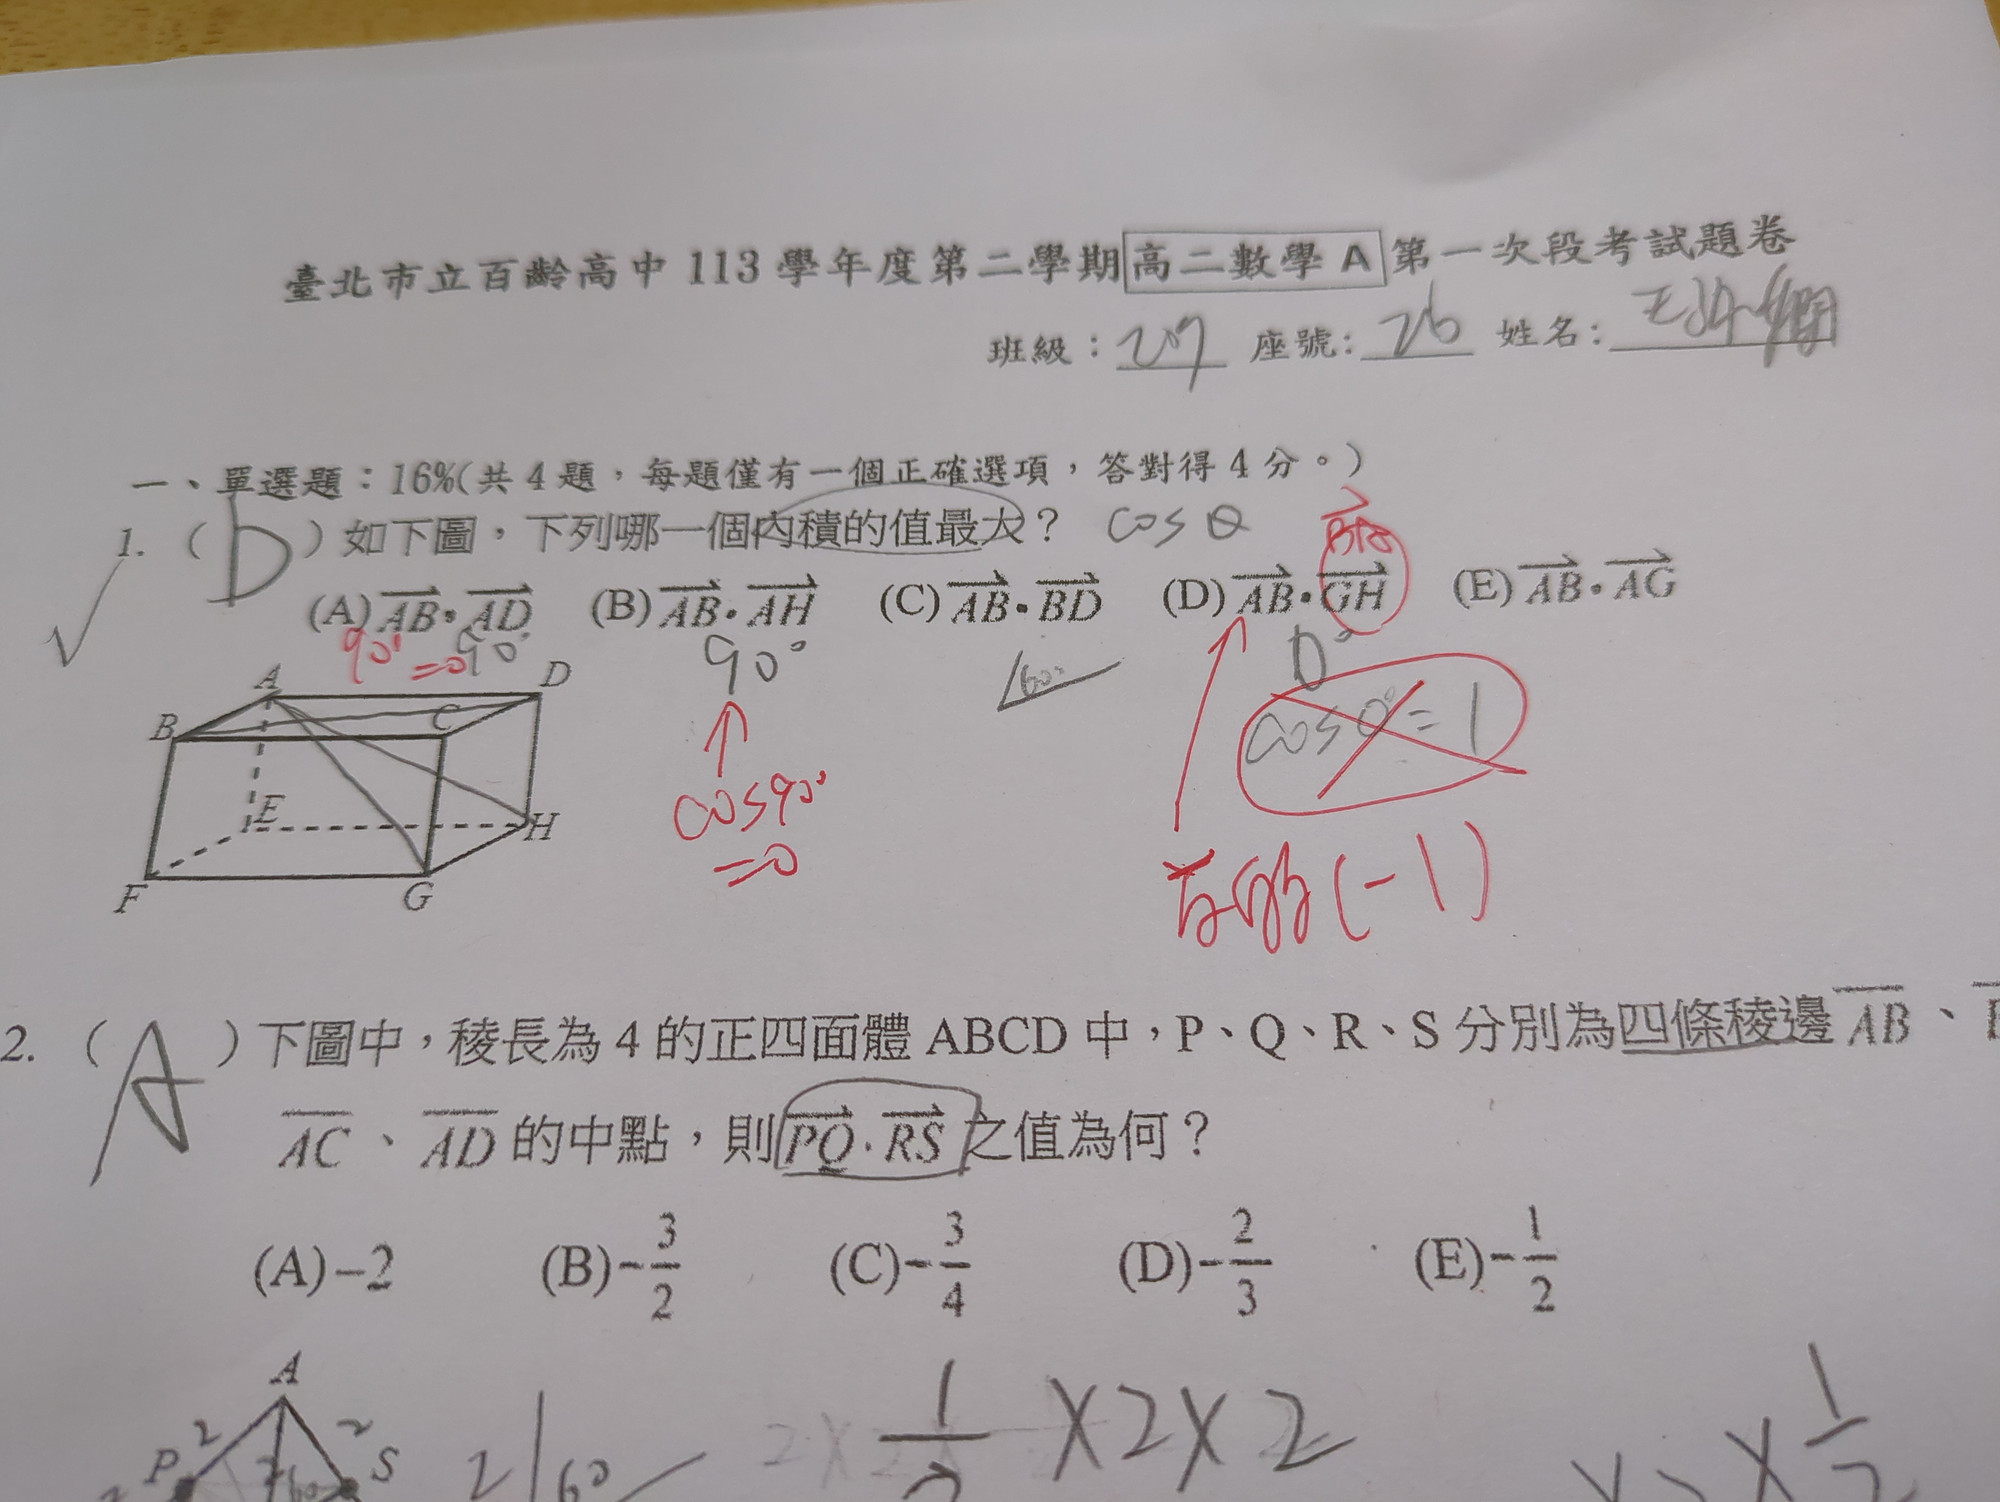 臺北市立百齡高中 113 學年度第二學期 高二數學 A 第一次段考試題卷
班級：207 座號: 26 姓名:
一、單選題：16%(共 4 題，每題僅有一個正確選項，答對得 4 分。)
1. ( D ) 如下圖，下列哪一個內積的值最大？ cos θ
(A) AB・AD (B) AB・AH (C) AB・BD (D) AB・GH (E) AB・AG
90° =0 90° 90° 60° 0°
cos0° = 1
cos90°
=0
(-1)
A D
B C
E H
F G
2. ( A ) 下圖中，稜長為 4 的正四面體 ABCD 中，P、Q、R、S 分別為四條稜邊 AB、
AC、AD 的中點，則 PQ・RS 之值為何？
(A) -2 (B) -3/2 (C) -3/4 (D) -2/3 (E) -1/2
A
P 2 2 S 2 60 1/2 ×2×2 × 1/2